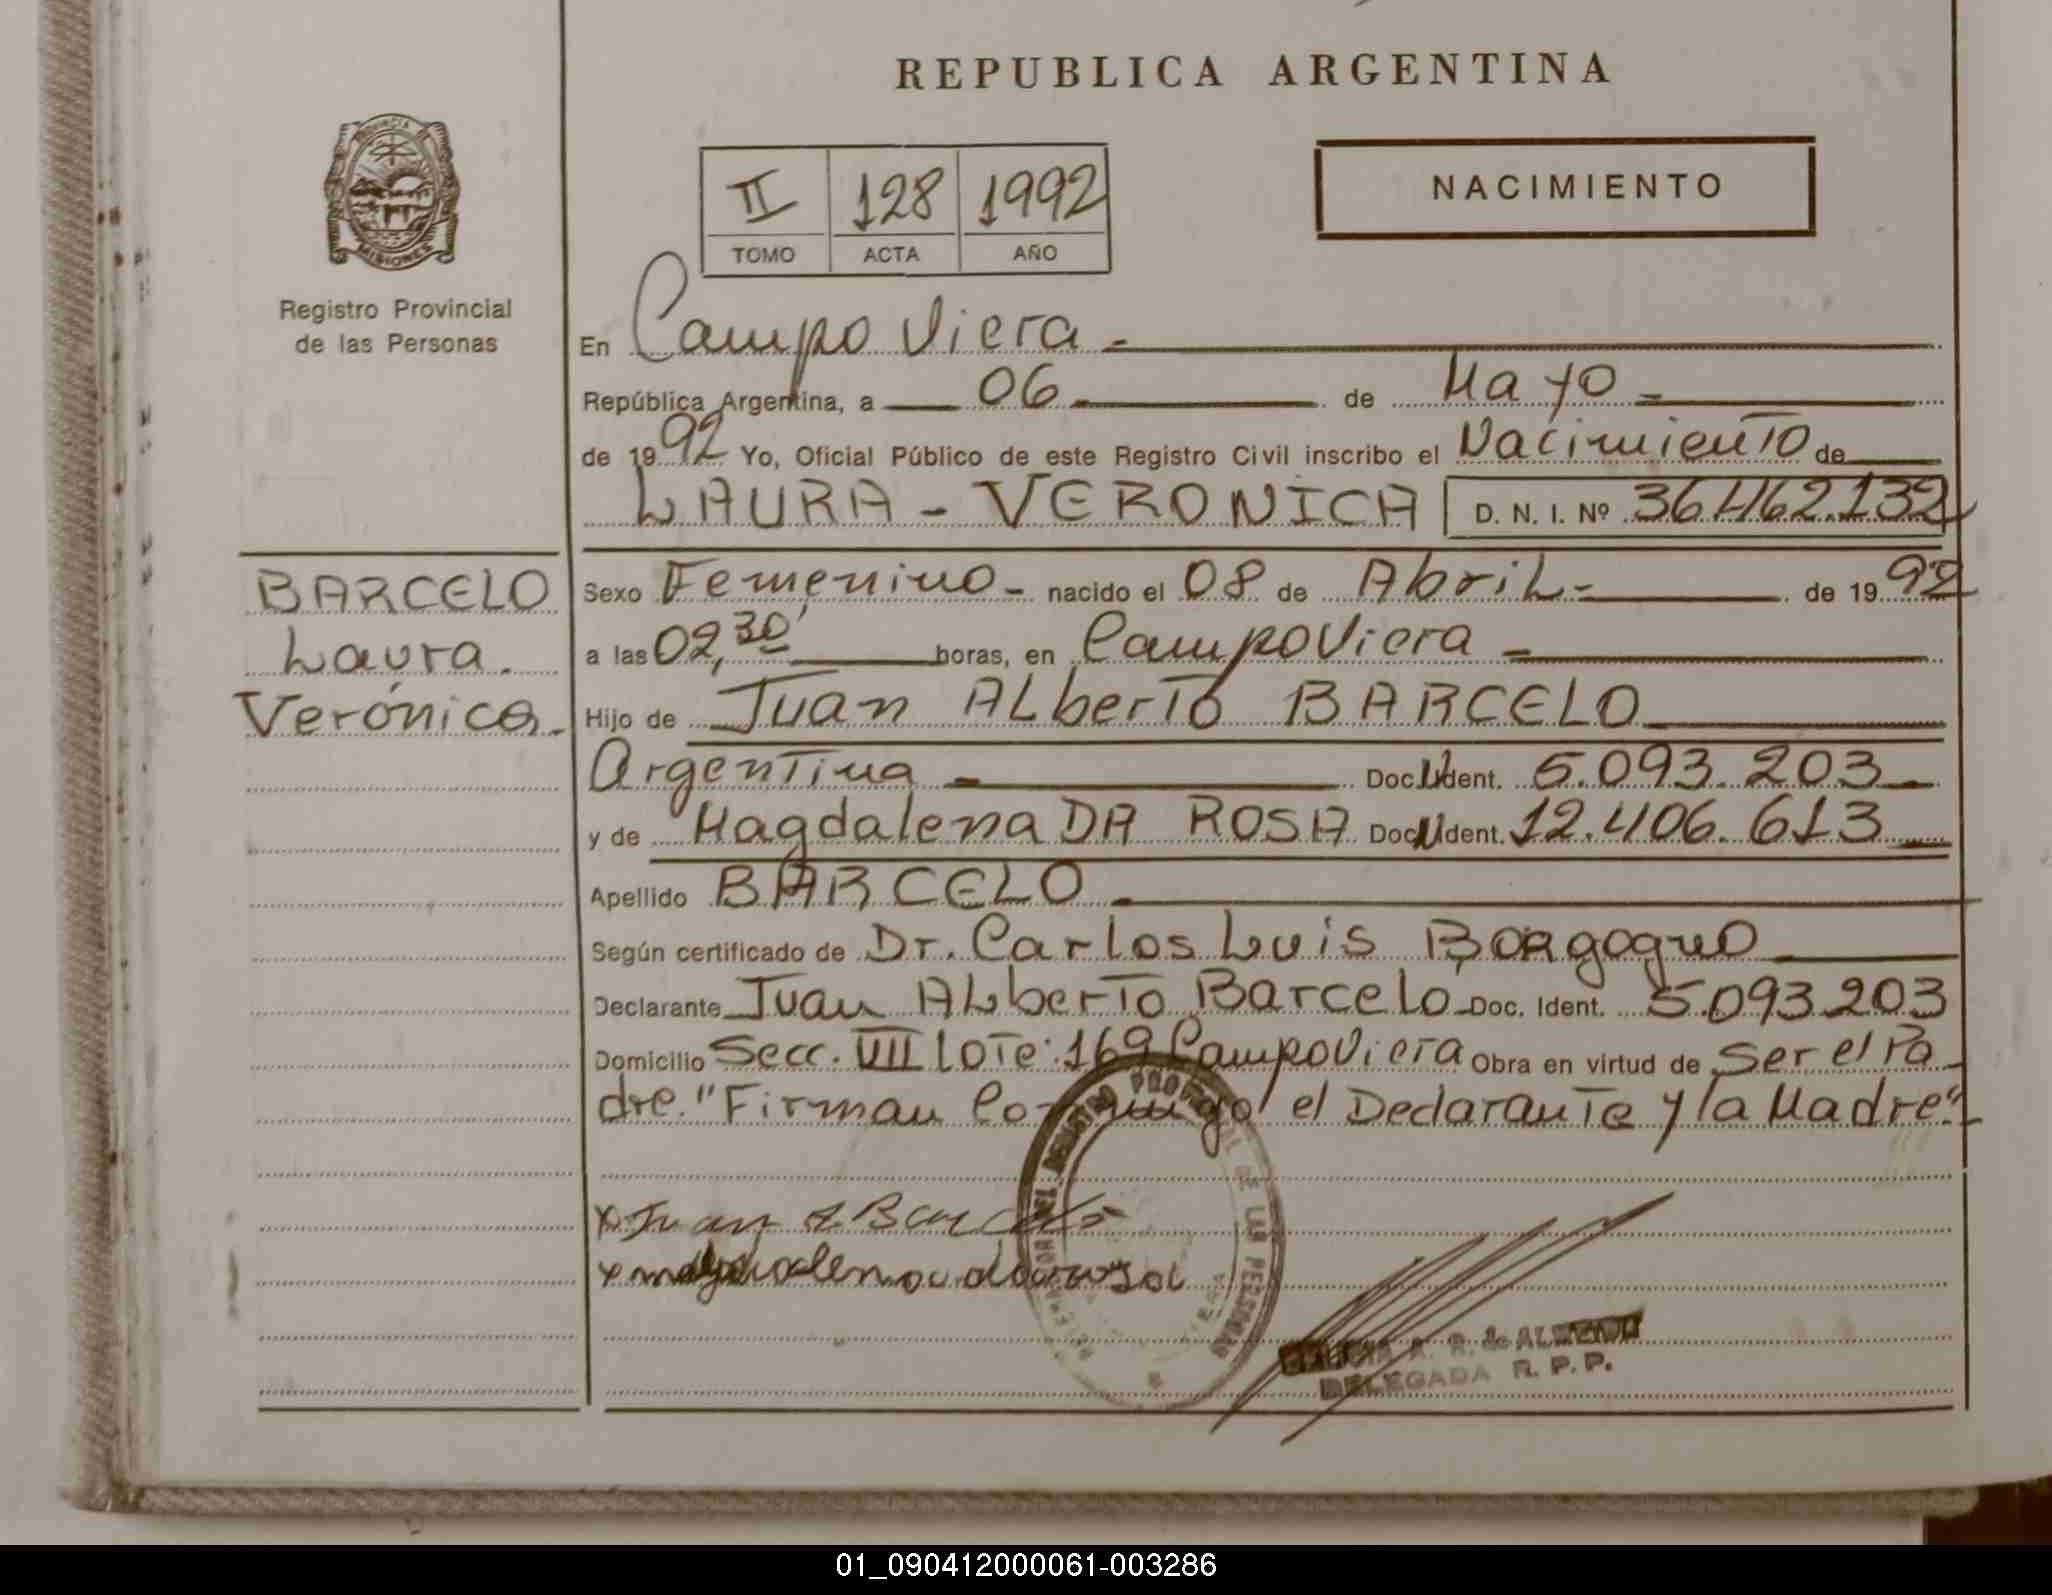 REPUBLICA ARGENTINA
PROVINCIA
MISIONES
Registro Provincial
de las Personas
II 128 1992
TOMO ACTA AÑO
NACIMIENTO
En Campo Viera
República Argentina, a 06 de Mayo
de 1992 Yo, Oficial Público de este Registro Civil inscribo el Nacimiento de
LAURA - VERONICA D. N. I. Nº 36462.132
BARCELO
Laura.
Verónica.
Sexo Femenino - nacido el 08 de Abril - de 1992
a las 02,30' horas, en Campo Viera
Hijo de Juan ALberto BARCELO
Argentina Doc. Ident. 5.093.203
y de Magdalena DA ROSA Doc. Ident. 12.406.613
Apellido BARCELO
Según certificado de Dr. Carlos Luis Borgogno
Declarante Juan ALberto Barcelo Doc. Ident. 5.093.203
Domicilio Secc. VII lote: 169 Campo Viera Obra en virtud de Ser el Pa
dre. "Firman Conmigo el Declarante y la Madre".
x Juan A Barcelo
x magdalena da rosa
REGISTRO PROVINCIAL DE LAS PERSONAS
A. R. de ALMEIDA
DELEGADA R. P. P.
01_090412000061-003286